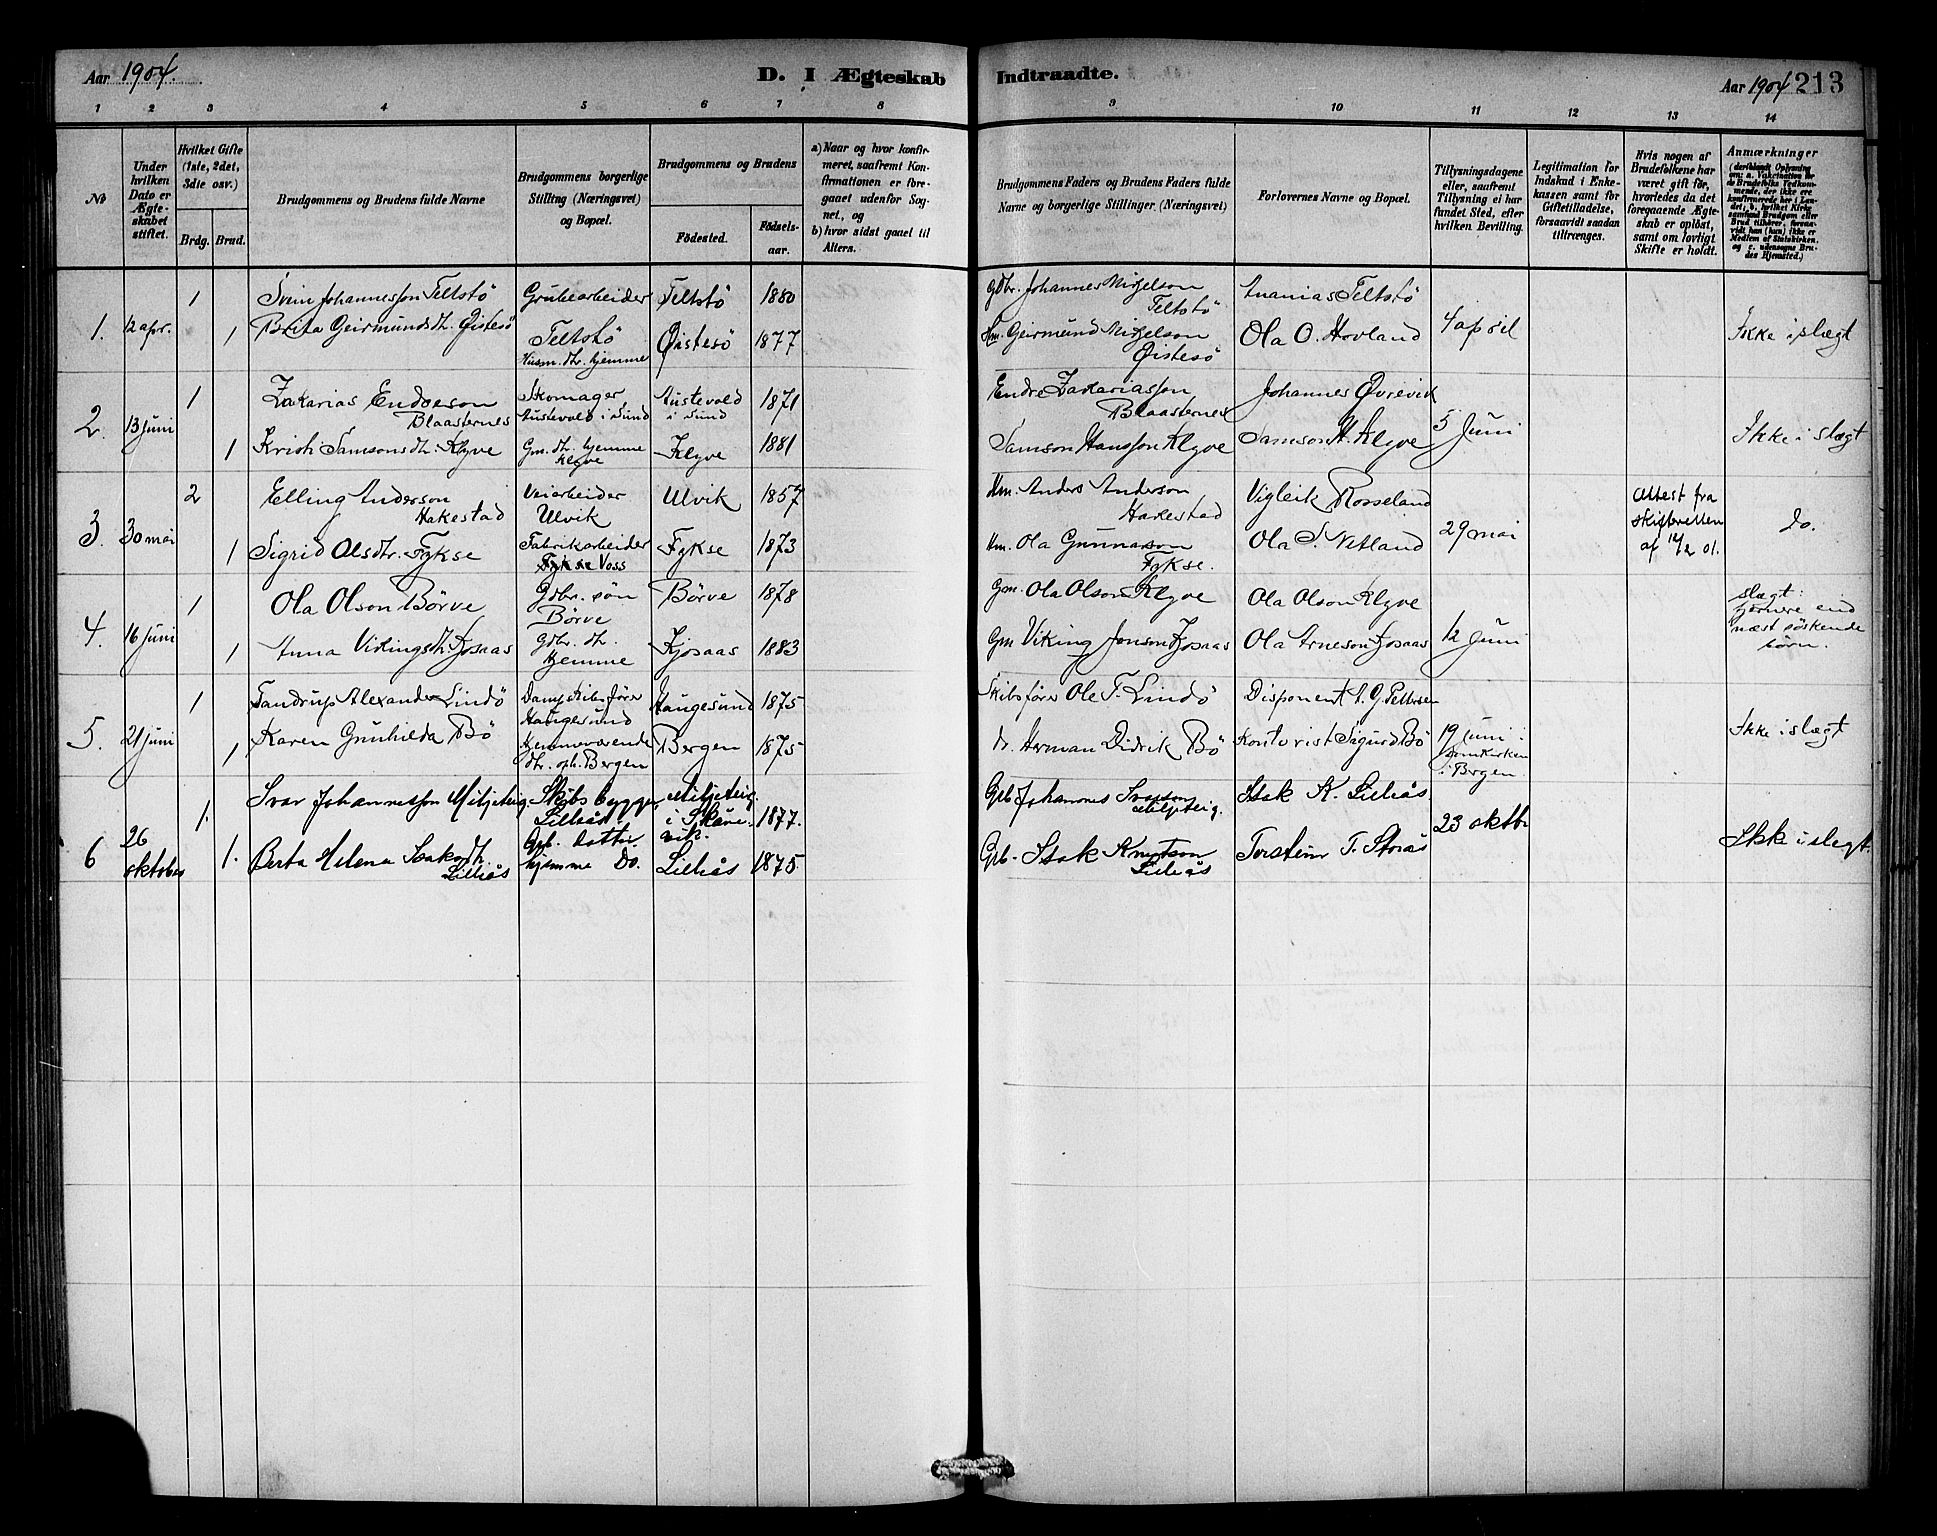 Aar 1904.
D. I Ægteskab Indtraadte.
Aar 1904 213
1 2 3 4 5 6 7 8 9 10 11 12 13 14
No
Under hvilken Dato er Ægteskabet stiftet.
Hvilket Gifte (1ste, 2det, 3die osv.)
Brdg. Brud.
Brudgommens og Brudens fulde Navne
Brudgommens borgerlige Stilling (Næringsvei) og Bopæl.
Brudgommens og Brudens
Födested.
Födselsaar.
a) Naar og hvor konfirmeret, saafremt Konfirmationen er foregaaet udenfor Sognet, og
b) hvor sidst gaaet til Alters.
Brudgommens Faders og Brudens Faders fulde Navne og borgerlige Stillinger. (Næringsvei)
Forlovernes Navne og Bopæl.
Tillysningsdagene eller, saafremt Tillysning ei har fundet Sted, efter hvilken Bevilling.
Legitimation for Indskud i Enkekassen samt for Giftetilladelse, forsaavidt saadan tiltrænges.
Hvis nogen af Brudefolkene har været gift før, hvorledes da det foregaaende Ægteskab er oplöst, samt om lovligt Skifte er holdt.
Anmærkninger
1. 12 apr. 1 Svein Johannesson Teltstö Grubearbeider Teltstö 1880 Gdbr. Johannes Teltstö Ananias Teltstö 4 april Ikke i slægt
1 Brita Geirmundsdtr. Øistesö Teltstö Husm. dtr. hjemme Øistesö 1877 Hm. Geirmund Øistesö Ola O. Hovland
2. 13 juni 1 Zakarias Enderson Blaasternes Skomager Austevold i Sund Austevold i Sund 1871 Endre Zakariasson Blaasternes Johannes Øvrevik 5 Juni Ikke i slægt
1 Kristi Samsonsdtr. Klyve Gm. dtr. hjemme Klyve Klyve 1881 Samson Hansson Klyve Samson H. Klyve
3. 30 mai 2 Elling Anderson Hakestad Veiarbeider Ulvik Ulvik 1857 Hm. Anders Anderson Hakestad Vigleik Rosseland 29 mai Attest fra skifteretten af 12/2 01. do.
1 Sigrid Olsdtr. Fykse Fabrikarbeider Fykse Voss Fykse 1873 Hm. Ola Gunnarson Fykse. Ola S. Netland
4. 16 juni 1 Ola Olson Börve Gdbr. sön Börve Börve 1878 Gm. Ola Olson Klyve Ola Olson Klyve 12 Juni slægt: fjernere end næst söskende börn.
1 Anna Vikingsdtr. Kjosaas Gdbr. dtr. hjemme Kjosaas 1883 Gm Viking Jonson Kjosaas Ola Arneson Kjosaas
5. 21 juni 1 Tandrup Alexander Lindö Dampskibsfører Haugesund Haugesund 1875 Skibsfører Ole T. Lindö Disponent A. G. Pettersen 19 juni i Domkirken i Bergen Ikke i slægt
1 Karen Gunhilda Bö Hjemmeværende dtr. oph. Bergen Bergen 1875 Herman Didrik Bö Kontorist Sigurd Bö
6 26 oktober 1. Ivar Johannesson Miljeteig Skibsbygger Lillaås Miljeteig i Skånevik. 1877. Grb Johannes Ivarson Miljeteig. Isak K. Lillaås. 23 oktbr Ikke i slegt.
1. Berta Helena Isaksdtr. Lillaås Grb. datter hjemme Do. Lillaås 1875 Grb. Isak Knutson Lillaås Torstein T. Storås